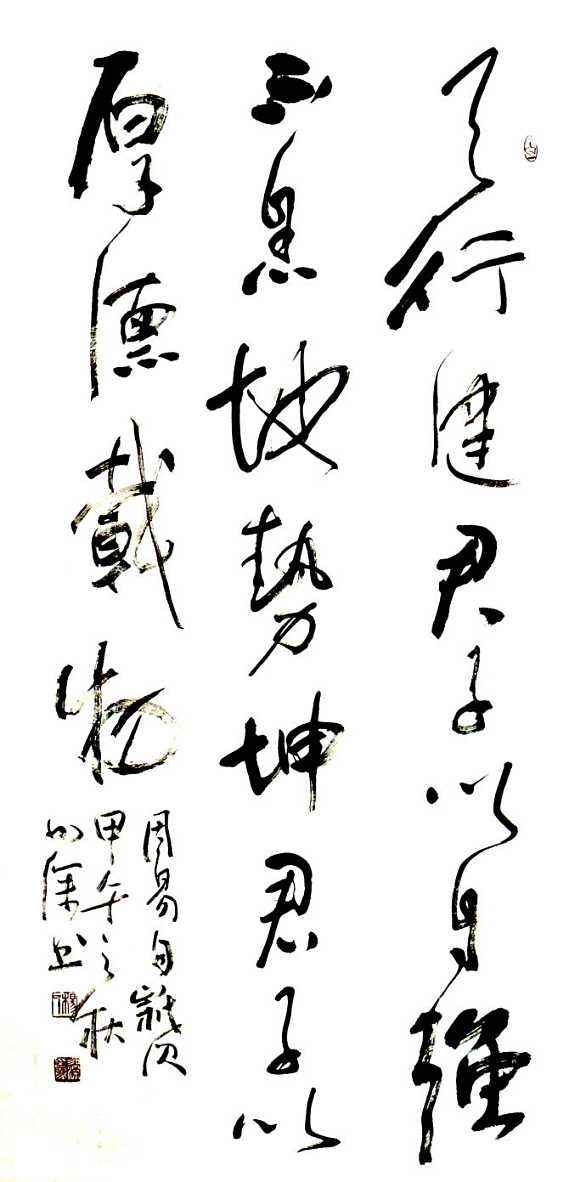 天行健君子以自强
不息地势坤君子以
厚德载物
周易句
甲午之秋
书